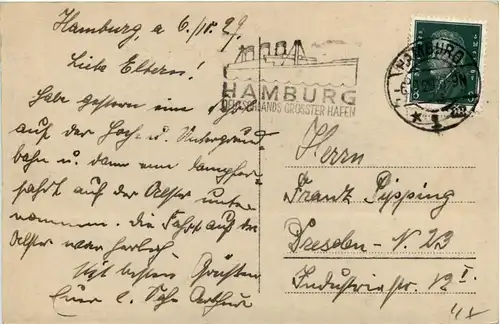 Hamburg a 6./10. 29.
Liebe Eltern!
Habe gestern eine
auf der Hoch- u. Untergrund-
bahn u. dann eine Dampfer-
fahrt auf der Alster unter-
nommen. Die Fahrt auf der
Alster war herlich.
Mit besten Grüssen
Euer l. Sohn Arthur
HAMBURG
DEUTSCHLANDS GRÖSSTER HAFEN
HAMBURG
* 1
Herrn
Franz Pipping
Dresden-N. 23
Industriestr. 12 I.